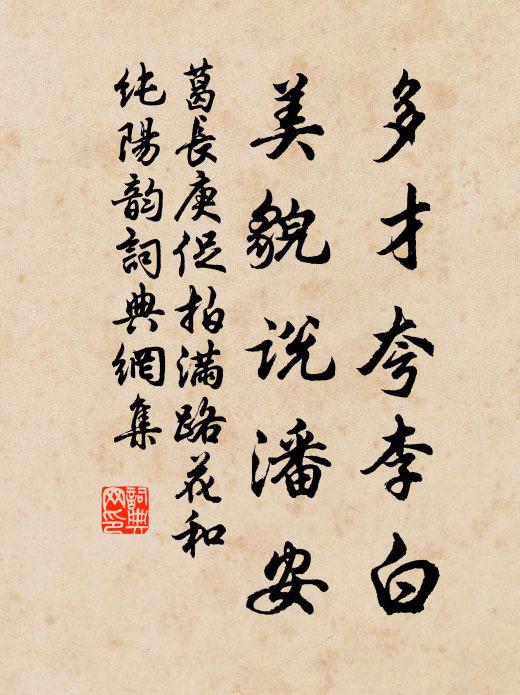 多才夸李白
美貌說潘安
葛長庚促拍滿路花和
純陽韵詞典網集
詞典
网印